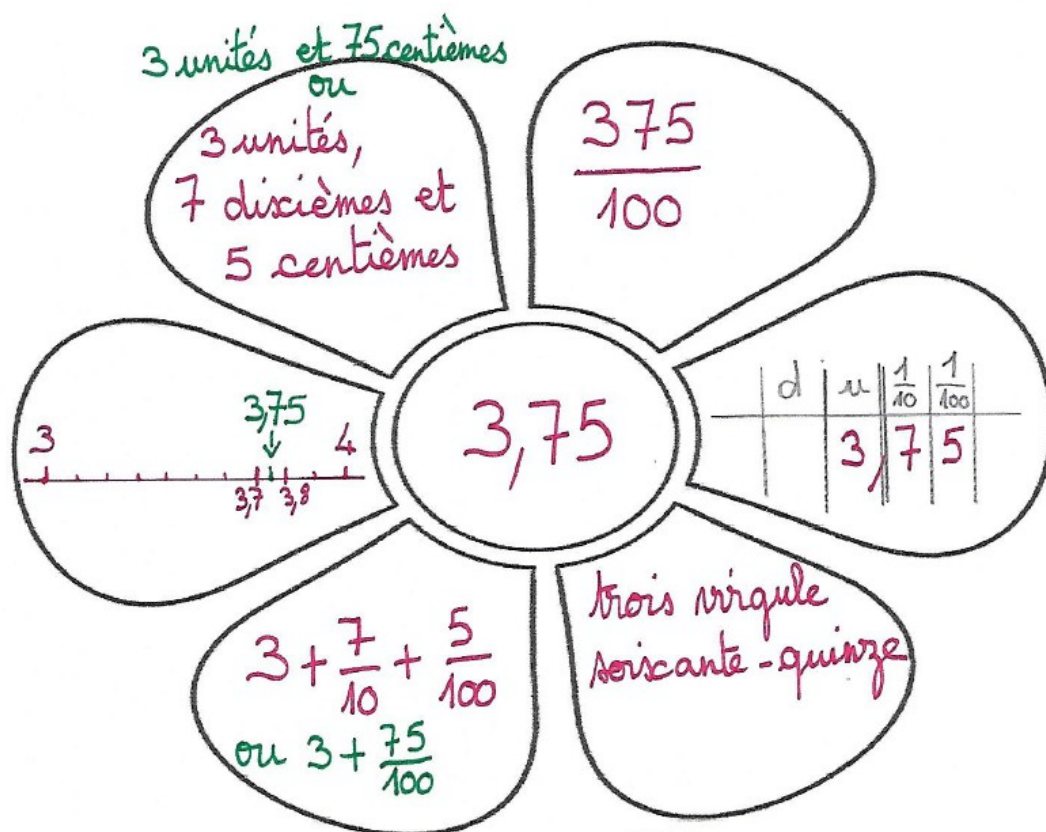 3 unités et 75 centièmes
ou
3 unités,
7 dixièmes et
5 centièmes
375
100
3,75
3 4
3,7 3,8
3,75
d u 1/10 1/100
3, 7 5
3 + 7/10 + 5/100
ou 3 + 75/100
trois virgule
soixante-quinze